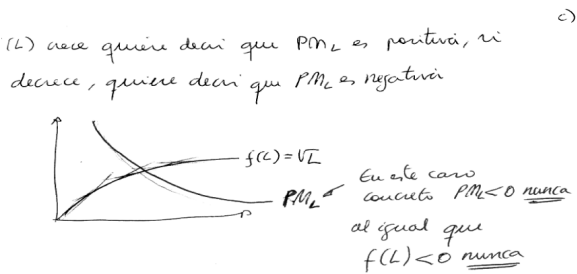 c)
(L) crece quiere decir que PM_L es positiva, si
decrece, quiere decir que PM_L es negativa
f(L) = √L
PM_L
En este caso
concreto PM_L < 0 nunca
al igual que
f(L) < 0 nunca